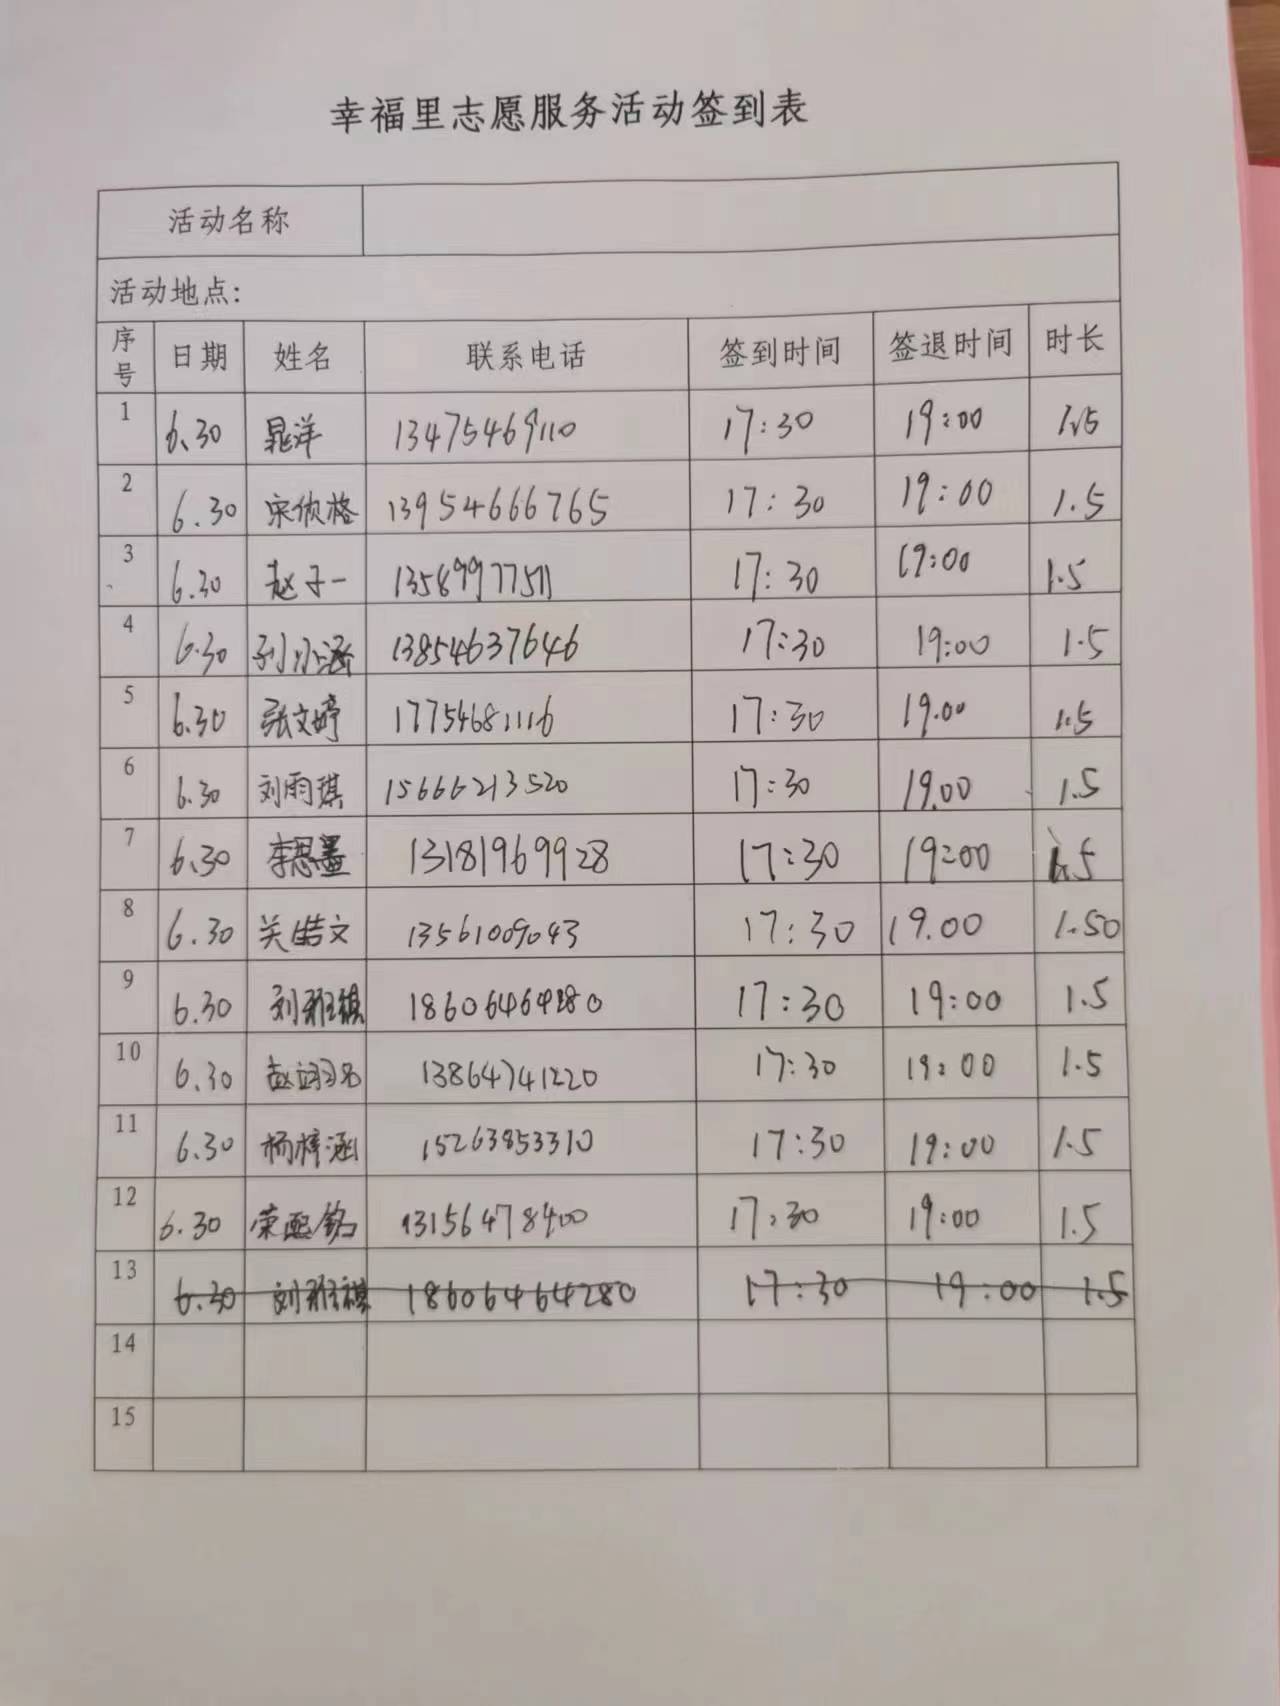 幸福里志愿服务活动签到表
活动名称
活动地点:
序号 日期 姓名 联系电话 签到时间 签退时间 时长
1 6.30 晁洋 13475469110 17:30 19:00 1.5
2 6.30 宋侦格 13954666765 17:30 19:00 1.5
3 6.30 赵子一 13589977511 17:30 19:00 1.5
4 6.30 孙小涵 13854637646 17:30 19:00 1.5
5 6.30 张文婷 17754681116 17:30 19.00 1.5
6 6.30 刘雨琪 15666213520 17:30 19.00 1.5
7 6.30 李思墨 13181969928 17:30 19:00 1.5
8 6.30 关皓文 13561009043 17:30 19.00 1.50
9 6.30 刘雅祺 18606464280 17:30 19:00 1.5
10 6.30 赵翊名 13864741220 17:30 19:00 1.5
11 6.30 杨梓涵 15263853310 17:30 19:00 1.5
12 6.30 荣熙铭 13156478400 17:30 19:00 1.5
13 6.30 刘雅祺 18606464280 17:30 19:00 1.5
14
15